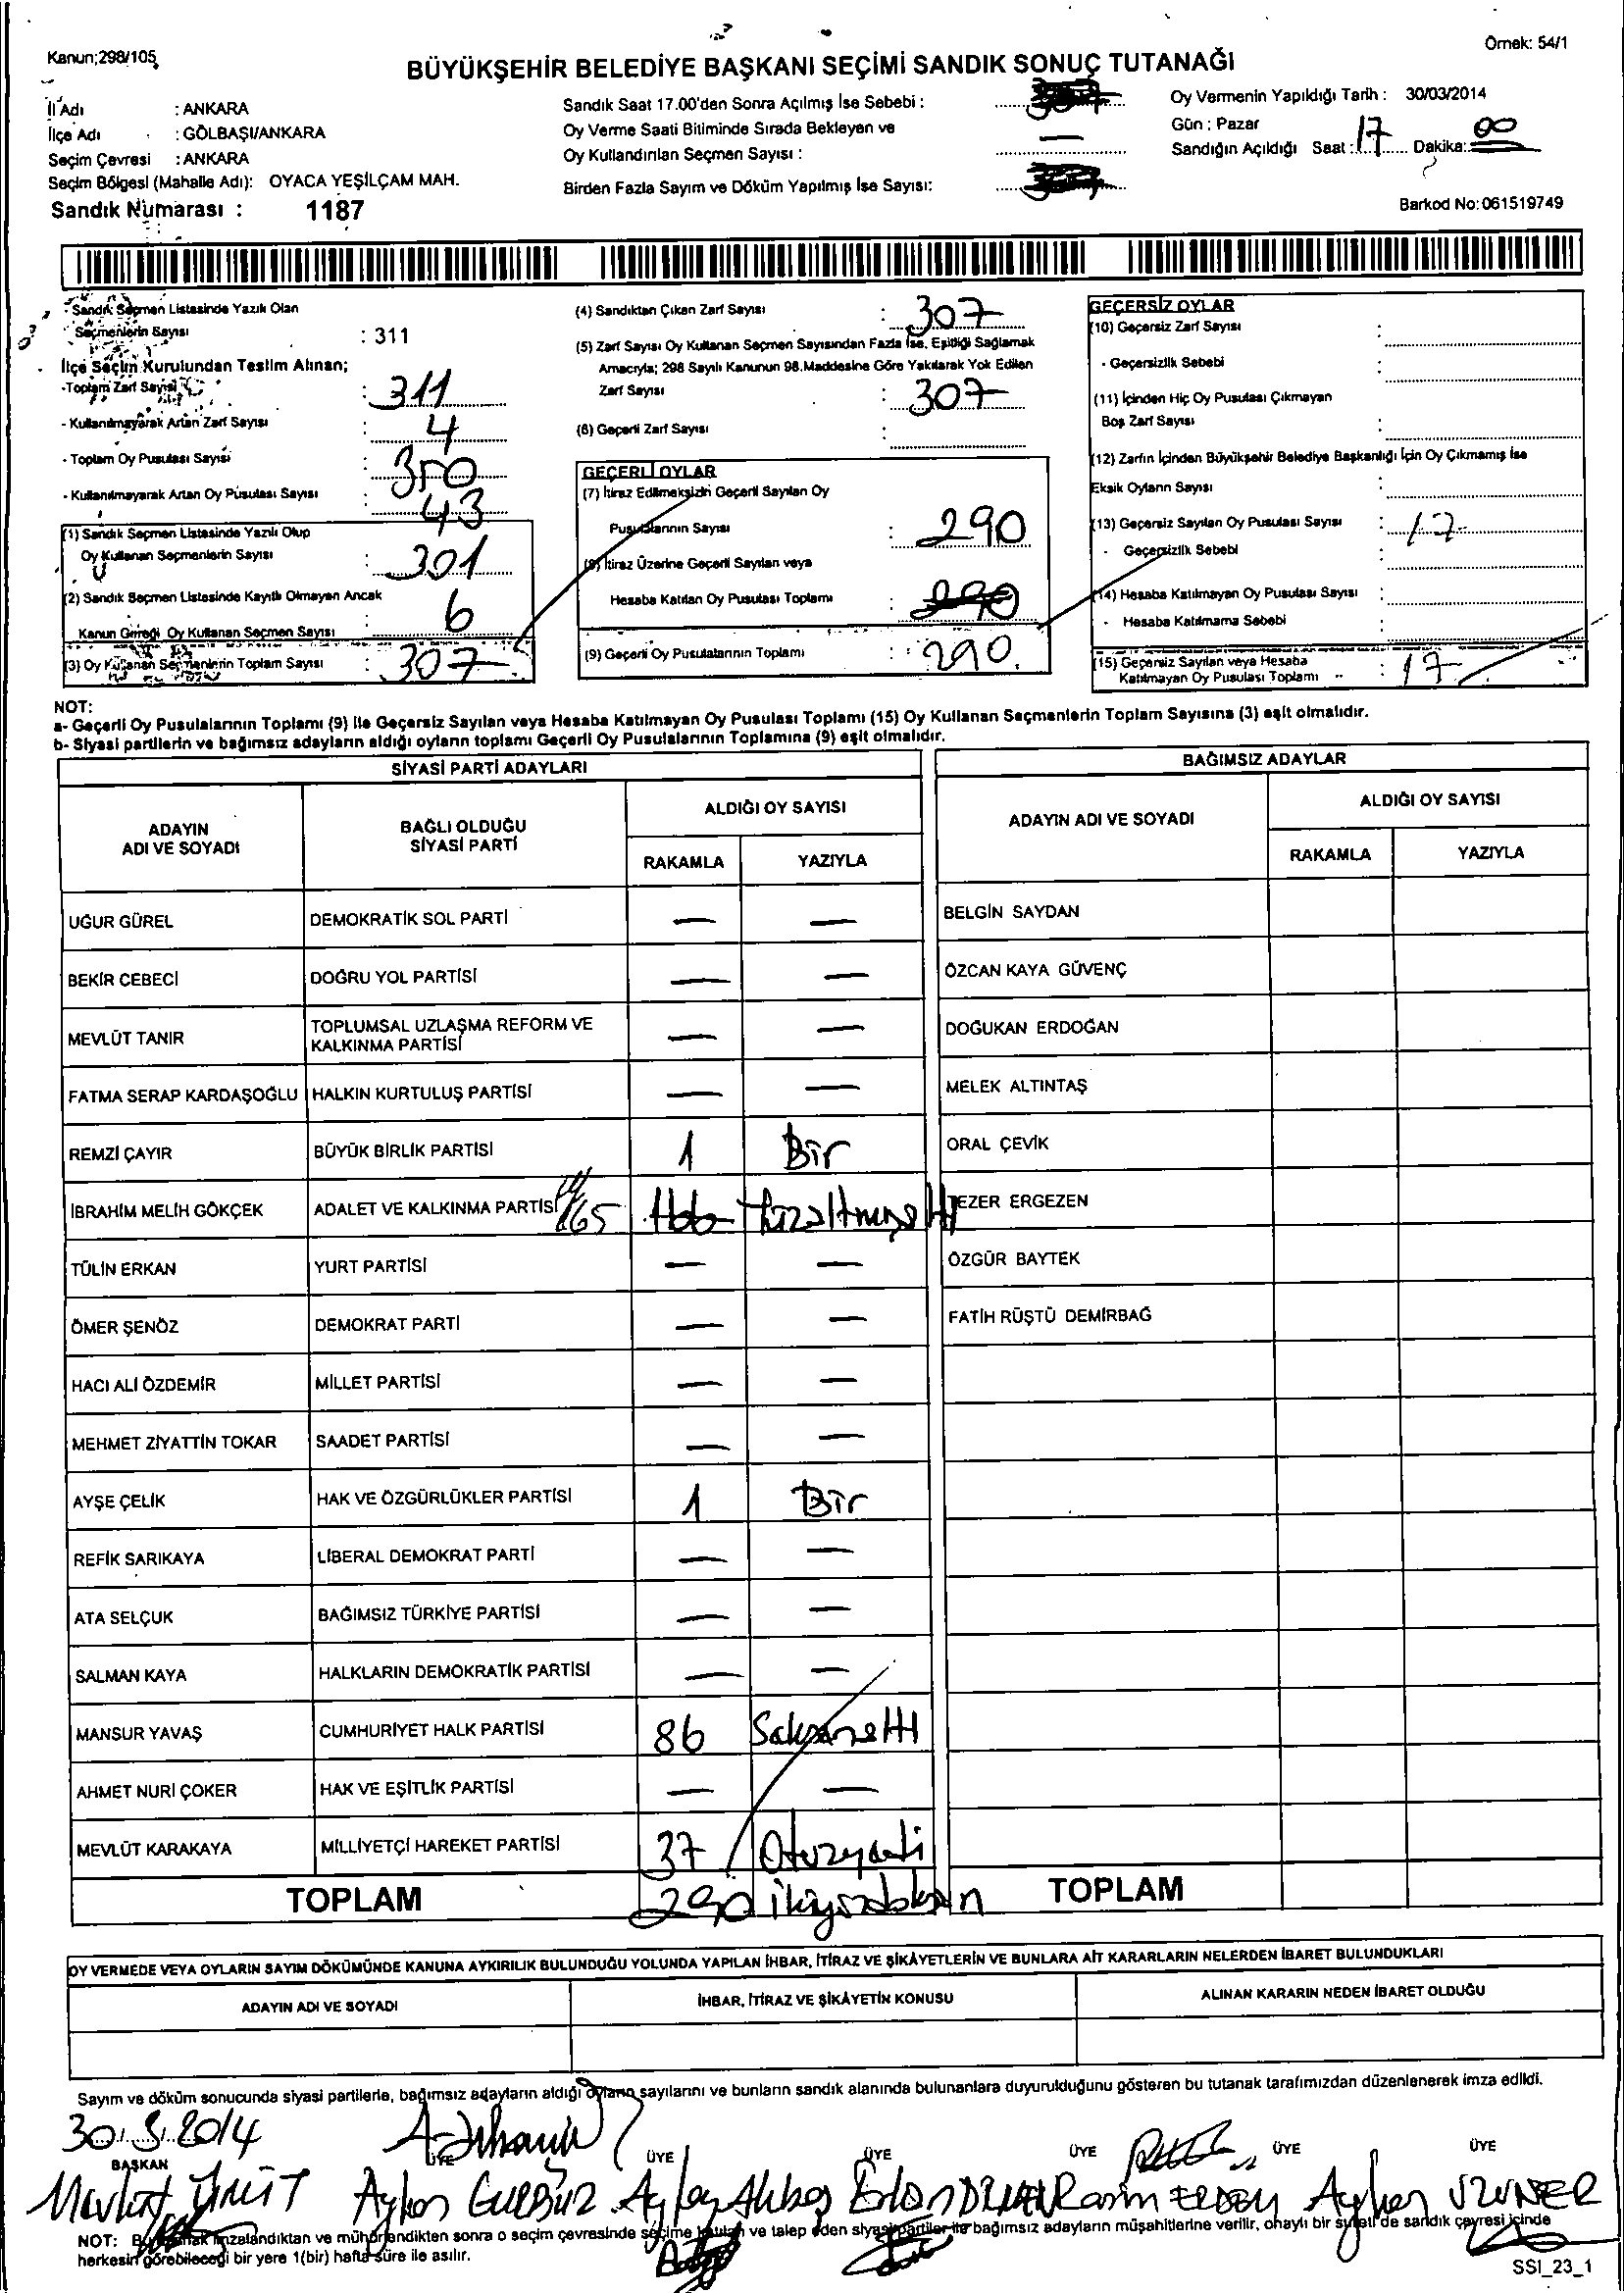 Kanun;298/105
Örnek: 54/1
BÜYÜKŞEHİR BELEDİYE BAŞKANI SEÇİMİ SANDIK SONUÇ TUTANAĞI
İl Adı : ANKARA
İlçe Adı : GÖLBAŞI/ANKARA
Seçim Çevresi : ANKARA
Seçim Bölgesi (Mahalle Adı): OYACA YEŞİLÇAM MAH.
Sandık Numarası : 1187
Sandık Saat 17.00'den Sonra Açılmış İse Sebebi :
Oy Verme Saati Bitiminde Sırada Bekleyen ve
Oy Kullandırılan Seçmen Sayısı : —
Birden Fazla Sayım ve Döküm Yapılmış İse Sayısı:
Oy Vermenin Yapıldığı Tarih : 30/03/2014
Gün : Pazar
Sandığın Açıldığı Saat : 17 Dakika: 00
Barkod No: 061519749
- Sandık Seçmen Listesinde Yazılı Olan
Seçmenlerin Sayısı : 311
İlçe Seçim Kurulundan Teslim Alınan;
-Toplam Zarf Sayısı : 311
- Kullanılmayarak Artan Zarf Sayısı : 4
- Toplam Oy Pusulası Sayısı : 350
- Kullanılmayarak Artan Oy Pusulası Sayısı : 43
(1) Sandık Seçmen Listesinde Yazılı Olup
Oy Kullanan Seçmenlerin Sayısı : 301
(2) Sandık Seçmen Listesinde Kayıtlı Olmayan Ancak
Kanun Gereği Oy Kullanan Seçmen Sayısı : 6
(3) Oy Kullanan Seçmenlerin Toplam Sayısı : 307
(4) Sandıktan Çıkan Zarf Sayısı : 307
(5) Zarf Sayısı Oy Kullanan Seçmen Sayısından Fazla İse, Eşitliği Sağlamak
Amacıyla; 298 Sayılı Kanunun 98.Maddesine Göre Yakılarak Yok Edilen
Zarf Sayısı : 307
(6) Geçerli Zarf Sayısı :
GEÇERLİ OYLAR
(7) İtiraz Edilmeksizin Geçerli Sayılan Oy
Pusulalarının Sayısı : 290
(8) İtiraz Üzerine Geçerli Sayılan veya
Hesaba Katılan Oy Pusulası Toplamı : 290
(9) Geçerli Oy Pusulalarının Toplamı : 290
GEÇERSİZ OYLAR
(10) Geçersiz Zarf Sayısı :
- Geçersizlik Sebebi :
(11) İçinden Hiç Oy Pusulası Çıkmayan
Boş Zarf Sayısı :
(12) Zarfın İçinden Büyükşehir Belediye Başkanlığı İçin Oy Çıkmamış İse
Eksik Oyların Sayısı :
(13) Geçersiz Sayılan Oy Pusulası Sayısı : 17
- Geçersizlik Sebebi :
(14) Hesaba Katılmayan Oy Pusulası Sayısı :
- Hesaba Katılmama Sebebi :
(15) Geçersiz Sayılan veya Hesaba
Katılmayan Oy Pusulası Toplamı : 17
NOT:
a- Geçerli Oy Pusulalarının Toplamı (9) ile Geçersiz Sayılan veya Hesaba Katılmayan Oy Pusulası Toplamı (15) Oy Kullanan Seçmenlerin Toplam Sayısına (3) eşit olmalıdır.
b- Siyasi partilerin ve bağımsız adayların aldığı oyların toplamı Geçerli Oy Pusulalarının Toplamına (9) eşit olmalıdır.
SİYASİ PARTİ ADAYLARI
ADAYIN ADI VE SOYADI BAĞLI OLDUĞU SİYASİ PARTİ ALDIĞI OY SAYISI
RAKAMLA YAZIYLA
UĞUR GÜREL DEMOKRATİK SOL PARTİ — —
BEKİR CEBECİ DOĞRU YOL PARTİSİ — —
MEVLÜT TANIR TOPLUMSAL UZLAŞMA REFORM VE KALKINMA PARTİSİ — —
FATMA SERAP KARDAŞOĞLU HALKIN KURTULUŞ PARTİSİ — —
REMZİ ÇAYIR BÜYÜK BİRLİK PARTİSİ 1 Bir
İBRAHİM MELİH GÖKÇEK ADALET VE KALKINMA PARTİSİ 165
TÜLİN ERKAN YURT PARTİSİ — —
ÖMER ŞENÖZ DEMOKRAT PARTİ — —
HACI ALİ ÖZDEMİR MİLLET PARTİSİ — —
MEHMET ZİYATTİN TOKAR SAADET PARTİSİ — —
AYŞE ÇELİK HAK VE ÖZGÜRLÜKLER PARTİSİ 1 Bir
REFİK SARIKAYA LİBERAL DEMOKRAT PARTİ — —
ATA SELÇUK BAĞIMSIZ TÜRKİYE PARTİSİ — —
SALMAN KAYA HALKLARIN DEMOKRATİK PARTİSİ — —
MANSUR YAVAŞ CUMHURİYET HALK PARTİSİ 86 Seksenaltı
AHMET NURİ ÇOKER HAK VE EŞİTLİK PARTİSİ — —
MEVLÜT KARAKAYA MİLLİYETÇİ HAREKET PARTİSİ 37 Otuzyedi
TOPLAM 290 ikiyüzdoksan
BAĞIMSIZ ADAYLAR
ADAYIN ADI VE SOYADI ALDIĞI OY SAYISI
RAKAMLA YAZIYLA
BELGİN SAYDAN
ÖZCAN KAYA GÜVENÇ
DOĞUKAN ERDOĞAN
MELEK ALTINTAŞ
ORAL ÇEVİK
EZER ERGEZEN
ÖZGÜR BAYTEK
FATİH RÜŞTÜ DEMİRBAĞ
TOPLAM
OY VERMEDE VEYA OYLARIN SAYIM DÖKÜMÜNDE KANUNA AYKIRILIK BULUNDUĞU YOLUNDA YAPILAN İHBAR, İTİRAZ VE ŞİKÂYETLERİN VE BUNLARA AİT KARARLARIN NELERDEN İBARET BULUNDUKLARI
ADAYIN ADI VE SOYADI İHBAR, İTİRAZ VE ŞİKÂYETİN KONUSU ALINAN KARARIN NEDEN İBARET OLDUĞU
Sayım ve döküm sonucunda siyasi partilerle, bağımsız adayların aldığı oyların sayılarını ve bunların sandık alanında bulunanlara duyurulduğunu gösteren bu tutanak tarafımızdan düzenlenerek imza edildi.
30.3.2014
BAŞKAN ÜYE ÜYE ÜYE ÜYE ÜYE ÜYE
Mevlüt Aykan GÜRBÜZ Aylay Akbaş Erdan Rasim ERDEM Ayhan UZUNER
NOT: Bu tutanak imzalandıktan ve mühürlendikten sonra o seçim çevresinde seçime katılan ve talep eden siyasi partiler ile bağımsız adayların müşahitlerine verilir, onaylı bir sureti de sandık çevresi içinde
herkesin görebileceği bir yere 1(bir) hafta süre ile asılır.
SSI_23_1